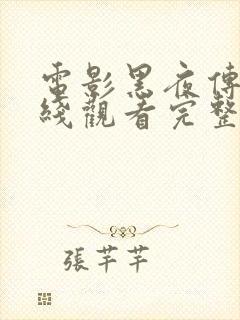 電影黑夜傳
綫觀看完整
張芊芊